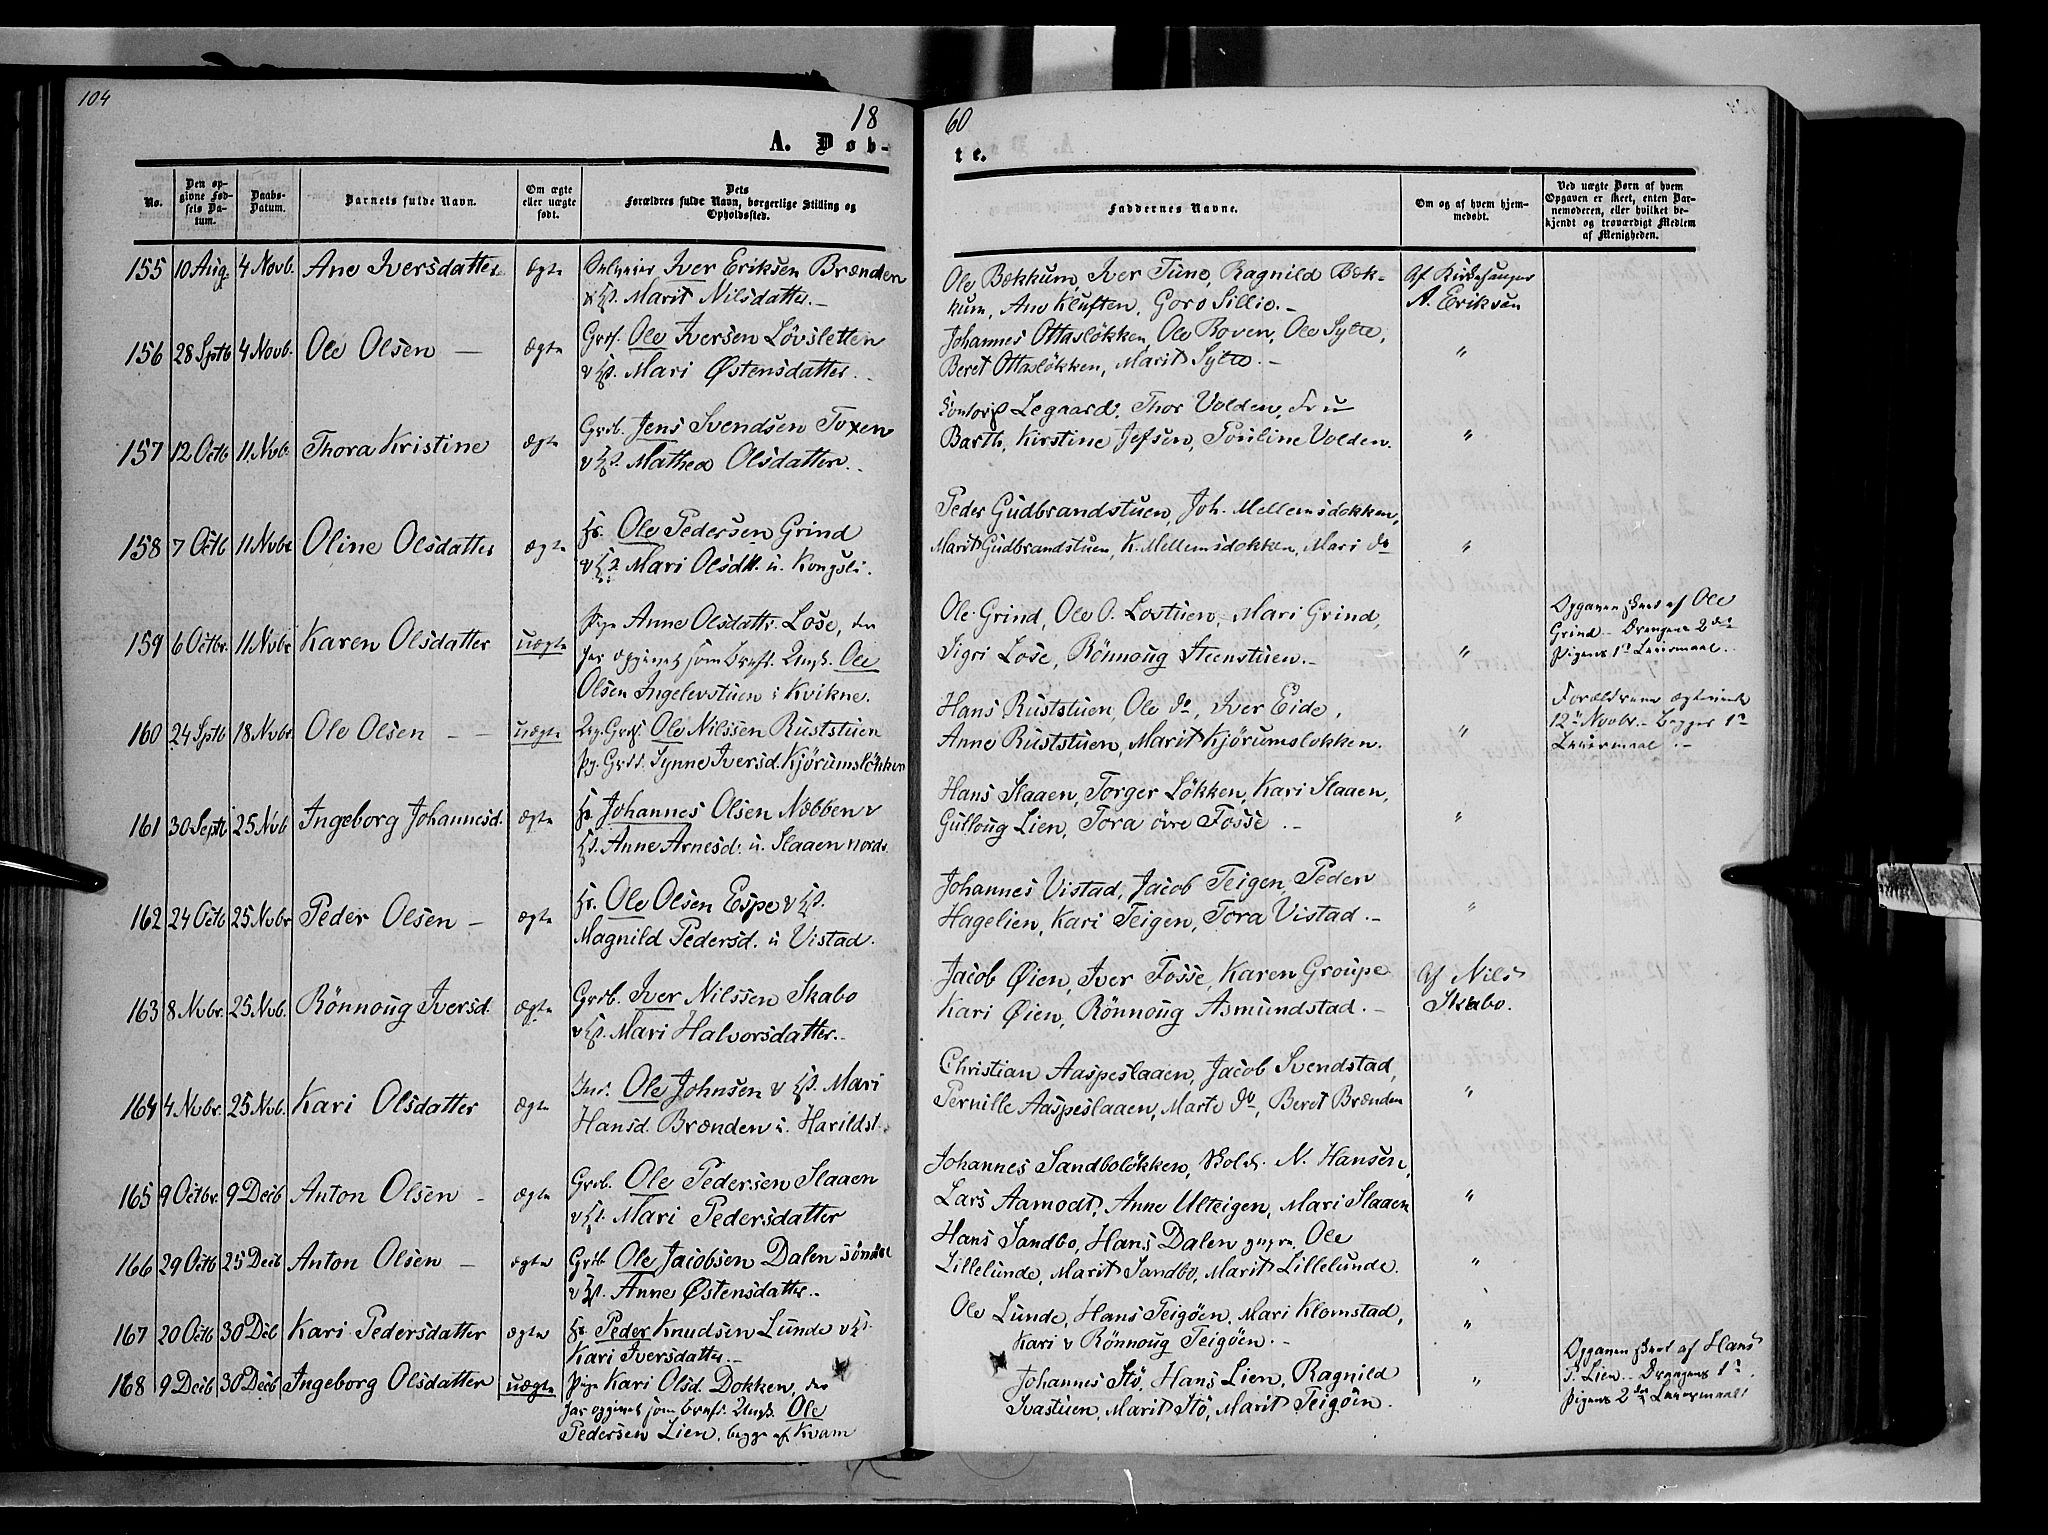 104
18
60
A. Døb-
te.
No.
Den op-
givne Fød-
sels Da-
tum.
Daabs-
Datum.
Barnets fulde Navn.
Om ægte
eller uægte
født.
Dets
Forældres fulde Navn, borgerlige Stilling og
Opholdssted.
Faddernes Navne.
Om og af hvem hjem-
medøbt.
Ved uægte Børn af hvem
Opgaven er skeet, enten Bar-
nemoderen, eller hvilket be-
kjendt og troværdigt Medlem
af Menigheden.
155 10 Aug. 4 Novb. Ane Iversdatter ægte
Iver Eriksen Brænden
Marit Nilsdatter. -
Ole Bækkum, Iver Tune, Ragnild Bæk-
kum, Ane Kluften, Goro Sillie. -
Af Kirkesanger
A. Eriksen
156 28 Sptb 4 Novb. Ole Olsen - ægte
Ole Iversen Løvsletten
Mari Østensdatter. -
Johannes Ottasløkken, Ole Boven, Ole Sylte,
Beret Ottasløkken, Marit Sylte. -
"
157 12 Octb 11. Nvb. Thora Kristine ægte
Grdb. Jens Svendsen Toxen
Mathea Olsdatter.
Legaard, Thor Volden, Fru
Barth, Kirstine Jefsen, Pauline Volden.
"
158 7 Octb 11 Nvbr Oline Olsdatter ægte
Hs. Ole Pedersen Grind
Mari Olsdtt. u. Kongsli.
Peder Gudbrandstuen, Joh. Mellemsdokken,
Marit Gudbrandstuen, K. Mellemsdokken, Mari do
"
159 6 Octbr. 11 Nvbr Karen Olsdatter uægte
Pige Anne Olsdattr. Lose, der
har opgivet som Barnef. Ungk. Ole
Olsen Ingelevstuen i Kvikne.
Ole Grind, Ole O. Lostuen, Mari Grind,
Sigri Lose, Rönnoug Steenstuen. -
"
Opgaven skeet af Ole
Grind - Drengens 2det
Pigens 1ste Leiermaal.
160 24 Sptb 18 Nvbr Ole Olsen - - uægte
Ole Nilssen Ruststuen
Synne Iversd. Kjörumslökken
Hans Ruststuen, Ole do, Iver Eide,
Anne Ruststuen, Marit Kjörumslökken.
"
Forældrene ægteviet
12te Nvbr. - Begges 1ste
Leiermaal. -
161 30 Septb 25 Nvb Ingeborg Johannesd. ægte
Hs. Johannes Olsen Nebben v
Anne Arnesd. u. Slaaen nordr
Hans Slaaen, Torger Løkken, Kari Slaaen,
Gulloug Lien, Tora övre Fosse. -
"
162 24 Octb 25 Nvbr Peder Olsen - ægte
Hs. Ole Olsen Espe v
Magnild Pedersd. u Vistad.
Johannes Vistad, Jacob Teigen, Peder
Hagelien, Kari Teigen, Tora Vistad. -
"
163 8 Nvbr. 25 Nvb. Rönnoug Iversd. ægte
Grdb. Iver Nilssen Skabo
Mari Halvorsdatter. -
Jacob Øien, Iver Fosse, Karen Groupe
Kari Øien, Rönnoug Asmundstad. -
Af Nils
Skabo.
164 4 Nvbr. 25 Nvb. Kari Olsdatter ægte
Ind. Ole Johnsen v Mari
Hansd. Brænden u. Harildst.
Christian Aaspeslaaen, Jacob Svendstad,
Pernille Aaspeslaaen, Marte do, Beret Brænden
"
165 9 Octbr. 9 Decb Anton Olsen - ægte
Grdb. Ole Pedersen Slaaen
Mari Pedersdatter
Johannes Sandboløkken, N. Hansen,
Lars Aamodt, Anne Ulteigen, Mari Slaaen
"
166 29 Octb 25 Decb Anton Olsen - ægte
Grdb Ole Jacobsen Dalen
Anne Østensdatter. -
Hans Sandbo, Hans Dalen yngre, Ole
Lillelunde, Marit Sandbo, Marit Lillelunde.
"
167 20 Octb 30 Dcb Kari Pedersdatter ægte
Hs Peder Knudsen Lunde v
Kari Iversdatter. -
Ole Lunde, Hans Teigöen, Mari Klomstad,
Kari v Rönnoug Teigöen. -
"
168 9 Decb 30 Decb Ingeborg Olsdatter uægte
Pige Kari Olsd. Dokken, der
har opgivet som Barnef. Ungk. Ole
Pedersen Lien, begge af Kvam
Johannes Stö, Hans Lien, Ragnild
Svastuen, Marit Stö, Marit Teigöen.
"
Opgaven skeet af Hans
P. Lien - Drengens 1ste
Pigens 2det Leiermaal